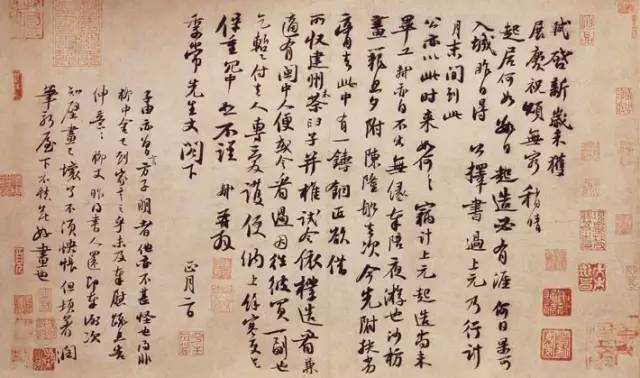 軾啟新歲未獲
展慶祝頌無窮稍晴
起居何如數日起造必有涯何日果可
入城昨日得公擇書過上元乃行計
月末間到此
公亦以此時來如何〻竊計上元起造尚未
畢工軾亦自不出無緣奉陪夜遊也沙枋
畫籠旦夕附陳隆船去次今先附扶劣
膏去此中有一鑄銅匠欲借
所收建州木茶臼子并椎試令依樣造看兼
適有閩中人便或令看過因往彼買一副也
乞暫付去人專愛護便納上餘寒更乞
保重冗中恕不謹軾再拜
季常先生丈閣下
正月二日
子由亦曾言方子明者他亦不甚怪也得非
柳中舍已到家言之乎未及奉慰疏且告
伸意〻柳丈昨得書人還即奉謝次
知壁畫已壞了不須怏悵但頓著潤
筆新屋下不愁無好畫也